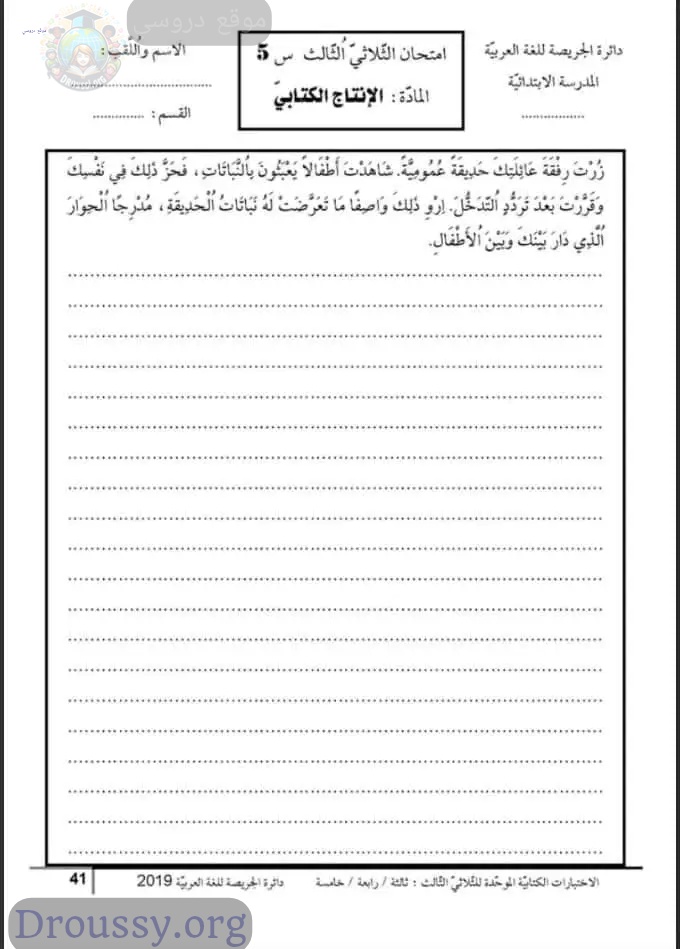 موقع دروسي
موقع دروسي
DROUSSY.ORG
دائرة الجريصة للغة العربيّة
المدرسة الابتدائيّة
................
امتحان الثّلاثيّ اُلثّالث س 5
المادّة : الإنتاج الكتابيّ
الاسم واُللّقب :
.....................................
القسم : .............
زُرْتَ رِفْقَةَ عَائِلَتِكَ حَدِيقَةً عُمُومِيَّةً. شَاهَدْتَ أَطْفَالاً يَعْبَثُونَ بِاُلنَّبَاتَاتِ ، فَحَزَّ ذَلِكَ فِي نَفْسِكَ
وَقَرَّرْتَ بَعْدَ تَرَدُّدٍ اُلتَّدَخُّلَ. اِرْوِ ذَلِكَ وَاصِفًا مَا تَعَرَّضَتْ لَهُ نَبَاتَاتُ اُلْحَدِيقَةِ ، مُدْرِجًا اُلْحِوَارَ
اُلَّذِي دَارَ بَيْنَكَ وَبَيْنَ اُلأَطْفَالِ.
الاختبارات الكتابيّة الموحّدة للثّلاثيّ الثّالث : ثالثة / رابعة / خامسة دائرة الجريصة للغة العربيّة 2019 41
Droussy.org